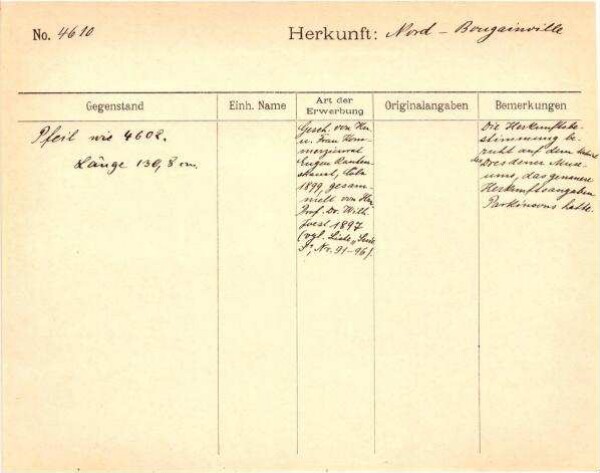 No. 4610
Herkunft: Nord - Bougainville
Gegenstand
Einh. Name
Art der Erwerbung
Originalangaben
Bemerkungen
Pfeil wie 4602.
Länge 130,8 cm.
Gesch. von Hn.
u. Frau Kom-
merzienrat
Eugen Rauten-
strauch, Cöln
1899, gesam-
melt von Hn.
Prof. Dr. Wilh.
Joest 1897
(vgl. Liste
Nr. 91-96).
Die Herkunftsbe-
stimmung be-
ruht auf dem
des Dresdener Muse-
ums, das genauere
Herkunftsangaben
Parkinsons hatte.